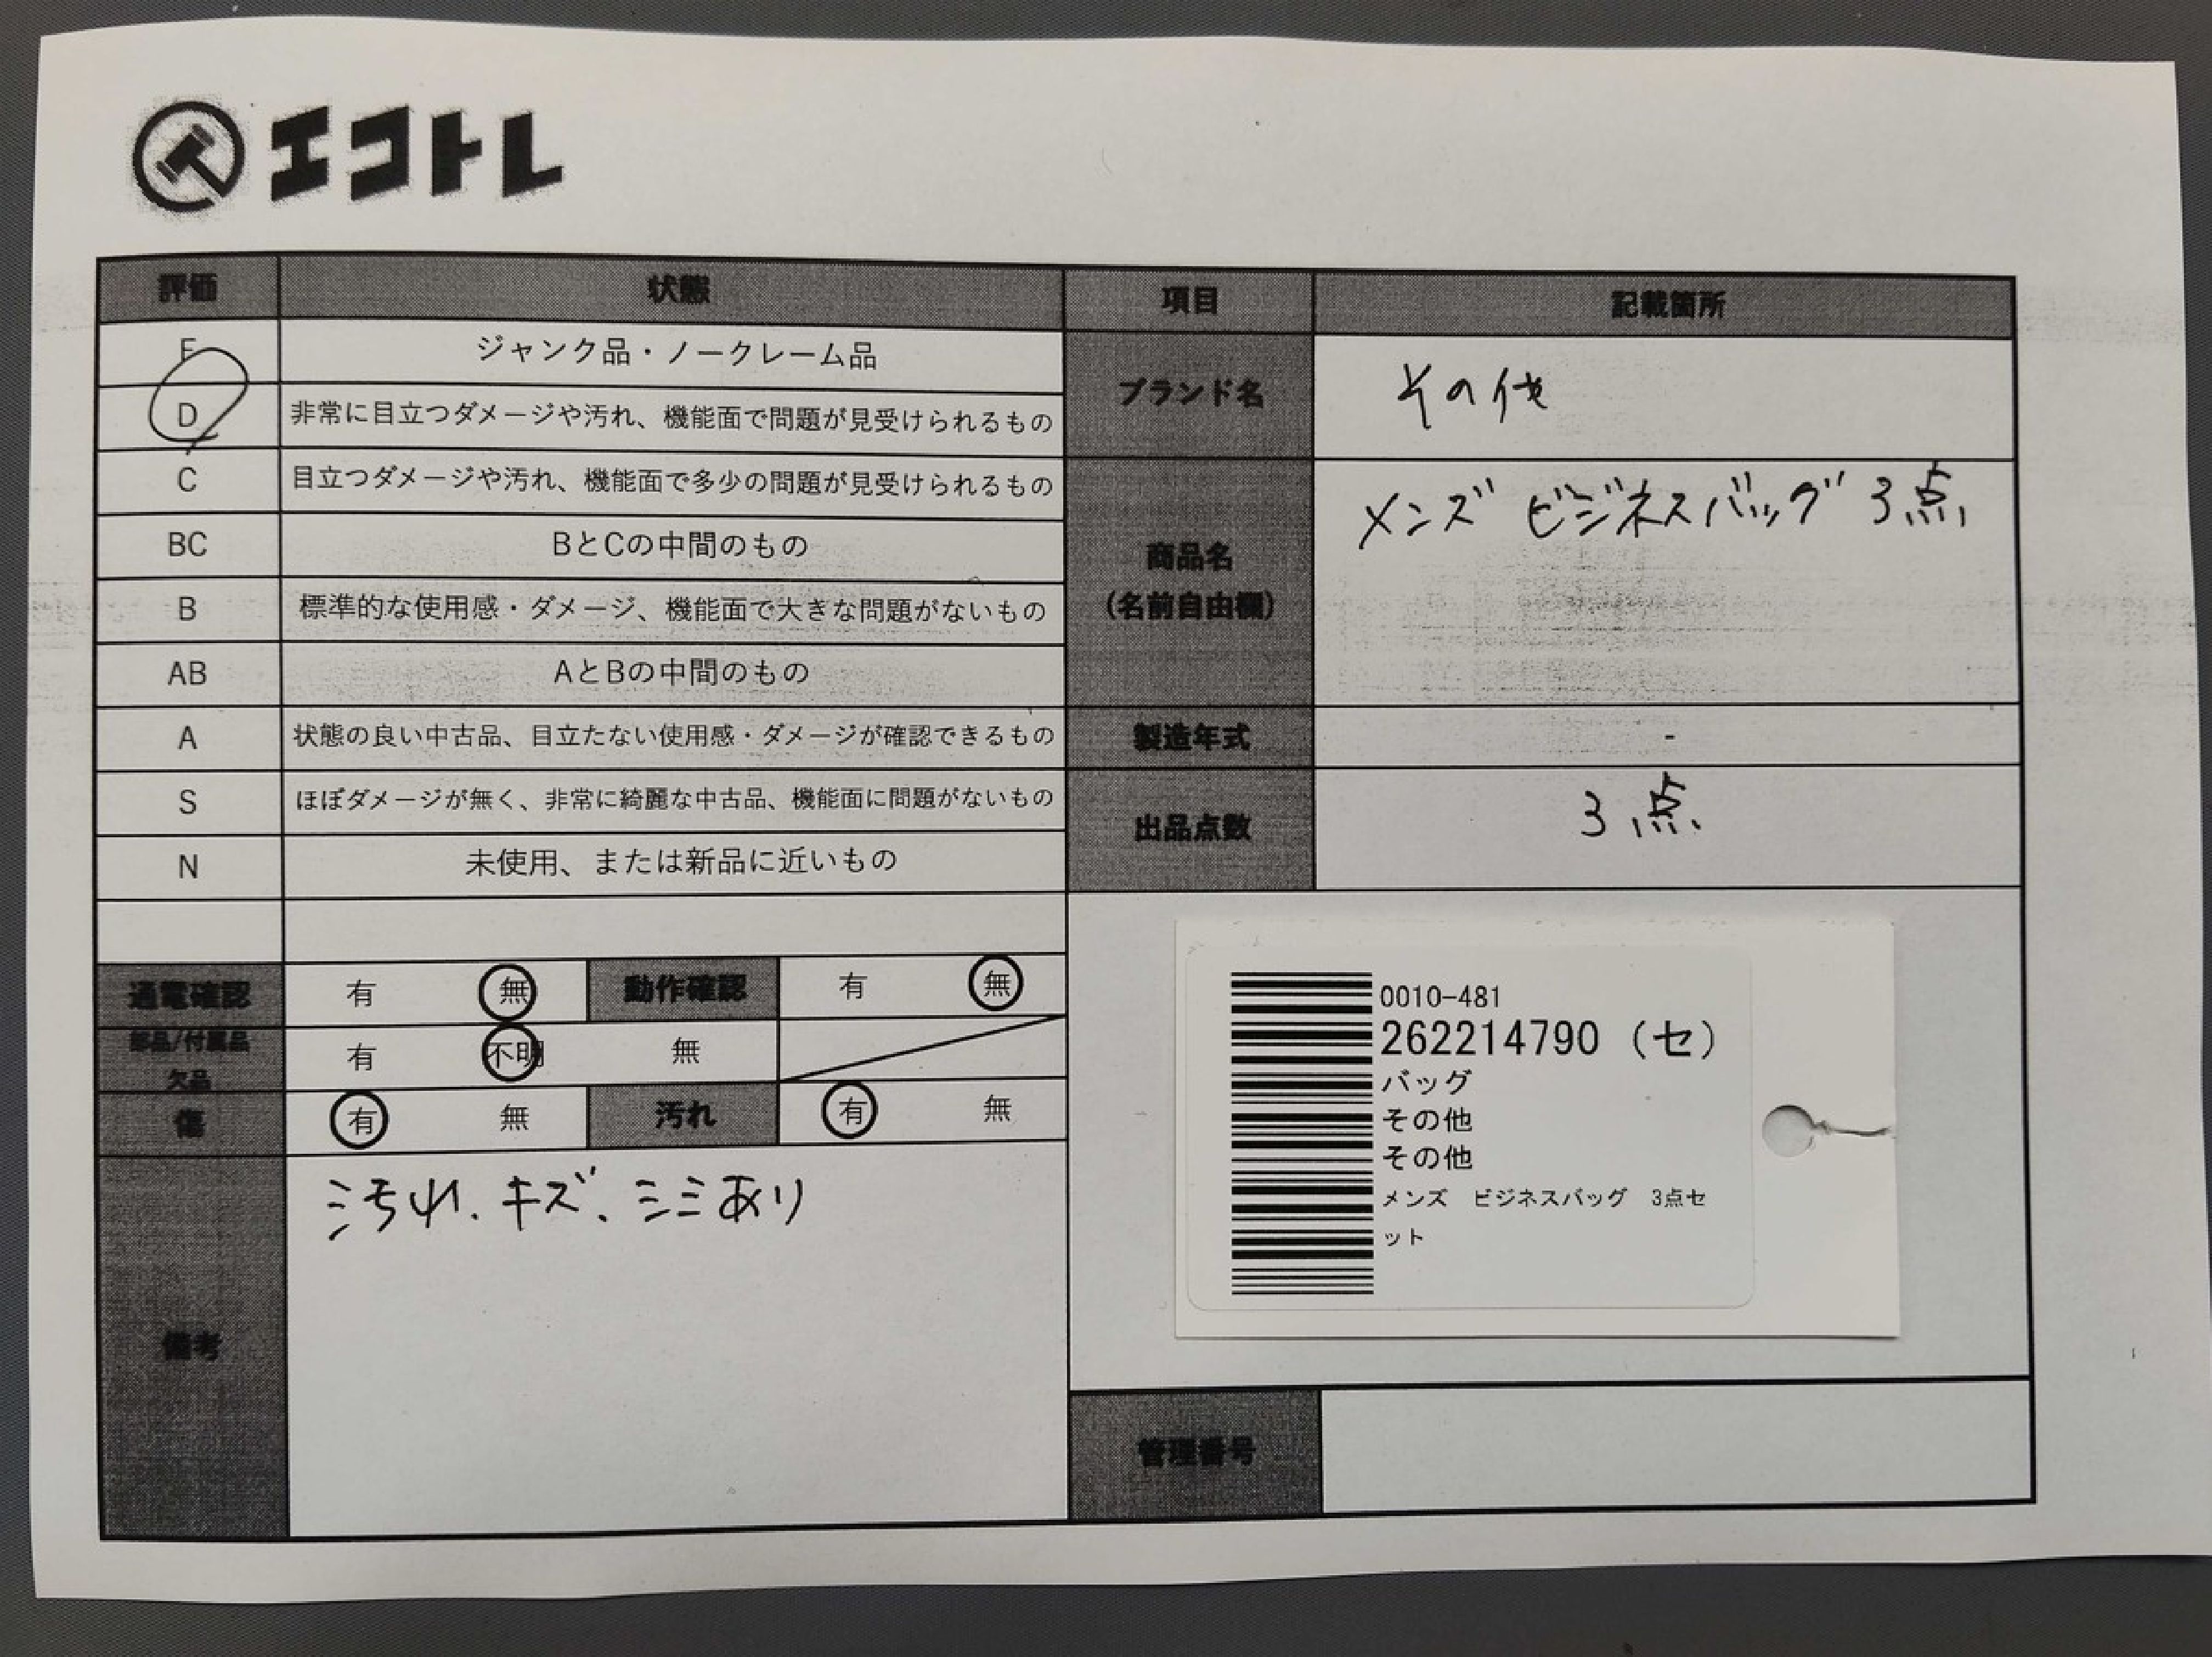 エコトレ
評価 状態
F ジャンク品・ノークレーム品
D 非常に目立つダメージや汚れ、機能面で問題が見受けられるもの
C 目立つダメージや汚れ、機能面で多少の問題が見受けられるもの
BC BとCの中間のもの
B 標準的な使用感・ダメージ、機能面で大きな問題がないもの
AB AとBの中間のもの
A 状態の良い中古品、目立たない使用感・ダメージが確認できるもの
S ほぼダメージが無く、非常に綺麗な中古品、機能面に問題がないもの
N 未使用、または新品に近いもの
通電確認 有 無 動作確認 有 無
部品/付属品
欠品 有 不明 無
傷 有 無 汚れ 有 無
備考 汚れ、キズ、シミあり
項目 記載箇所
ブランド名 その他
商品名
(名前自由欄) メンズ ビジネスバッグ 3点
製造年式 -
出品点数 3点
0010-481
262214790 (セ)
バッグ
その他
その他
メンズ ビジネスバッグ 3点セ
ット
管理番号